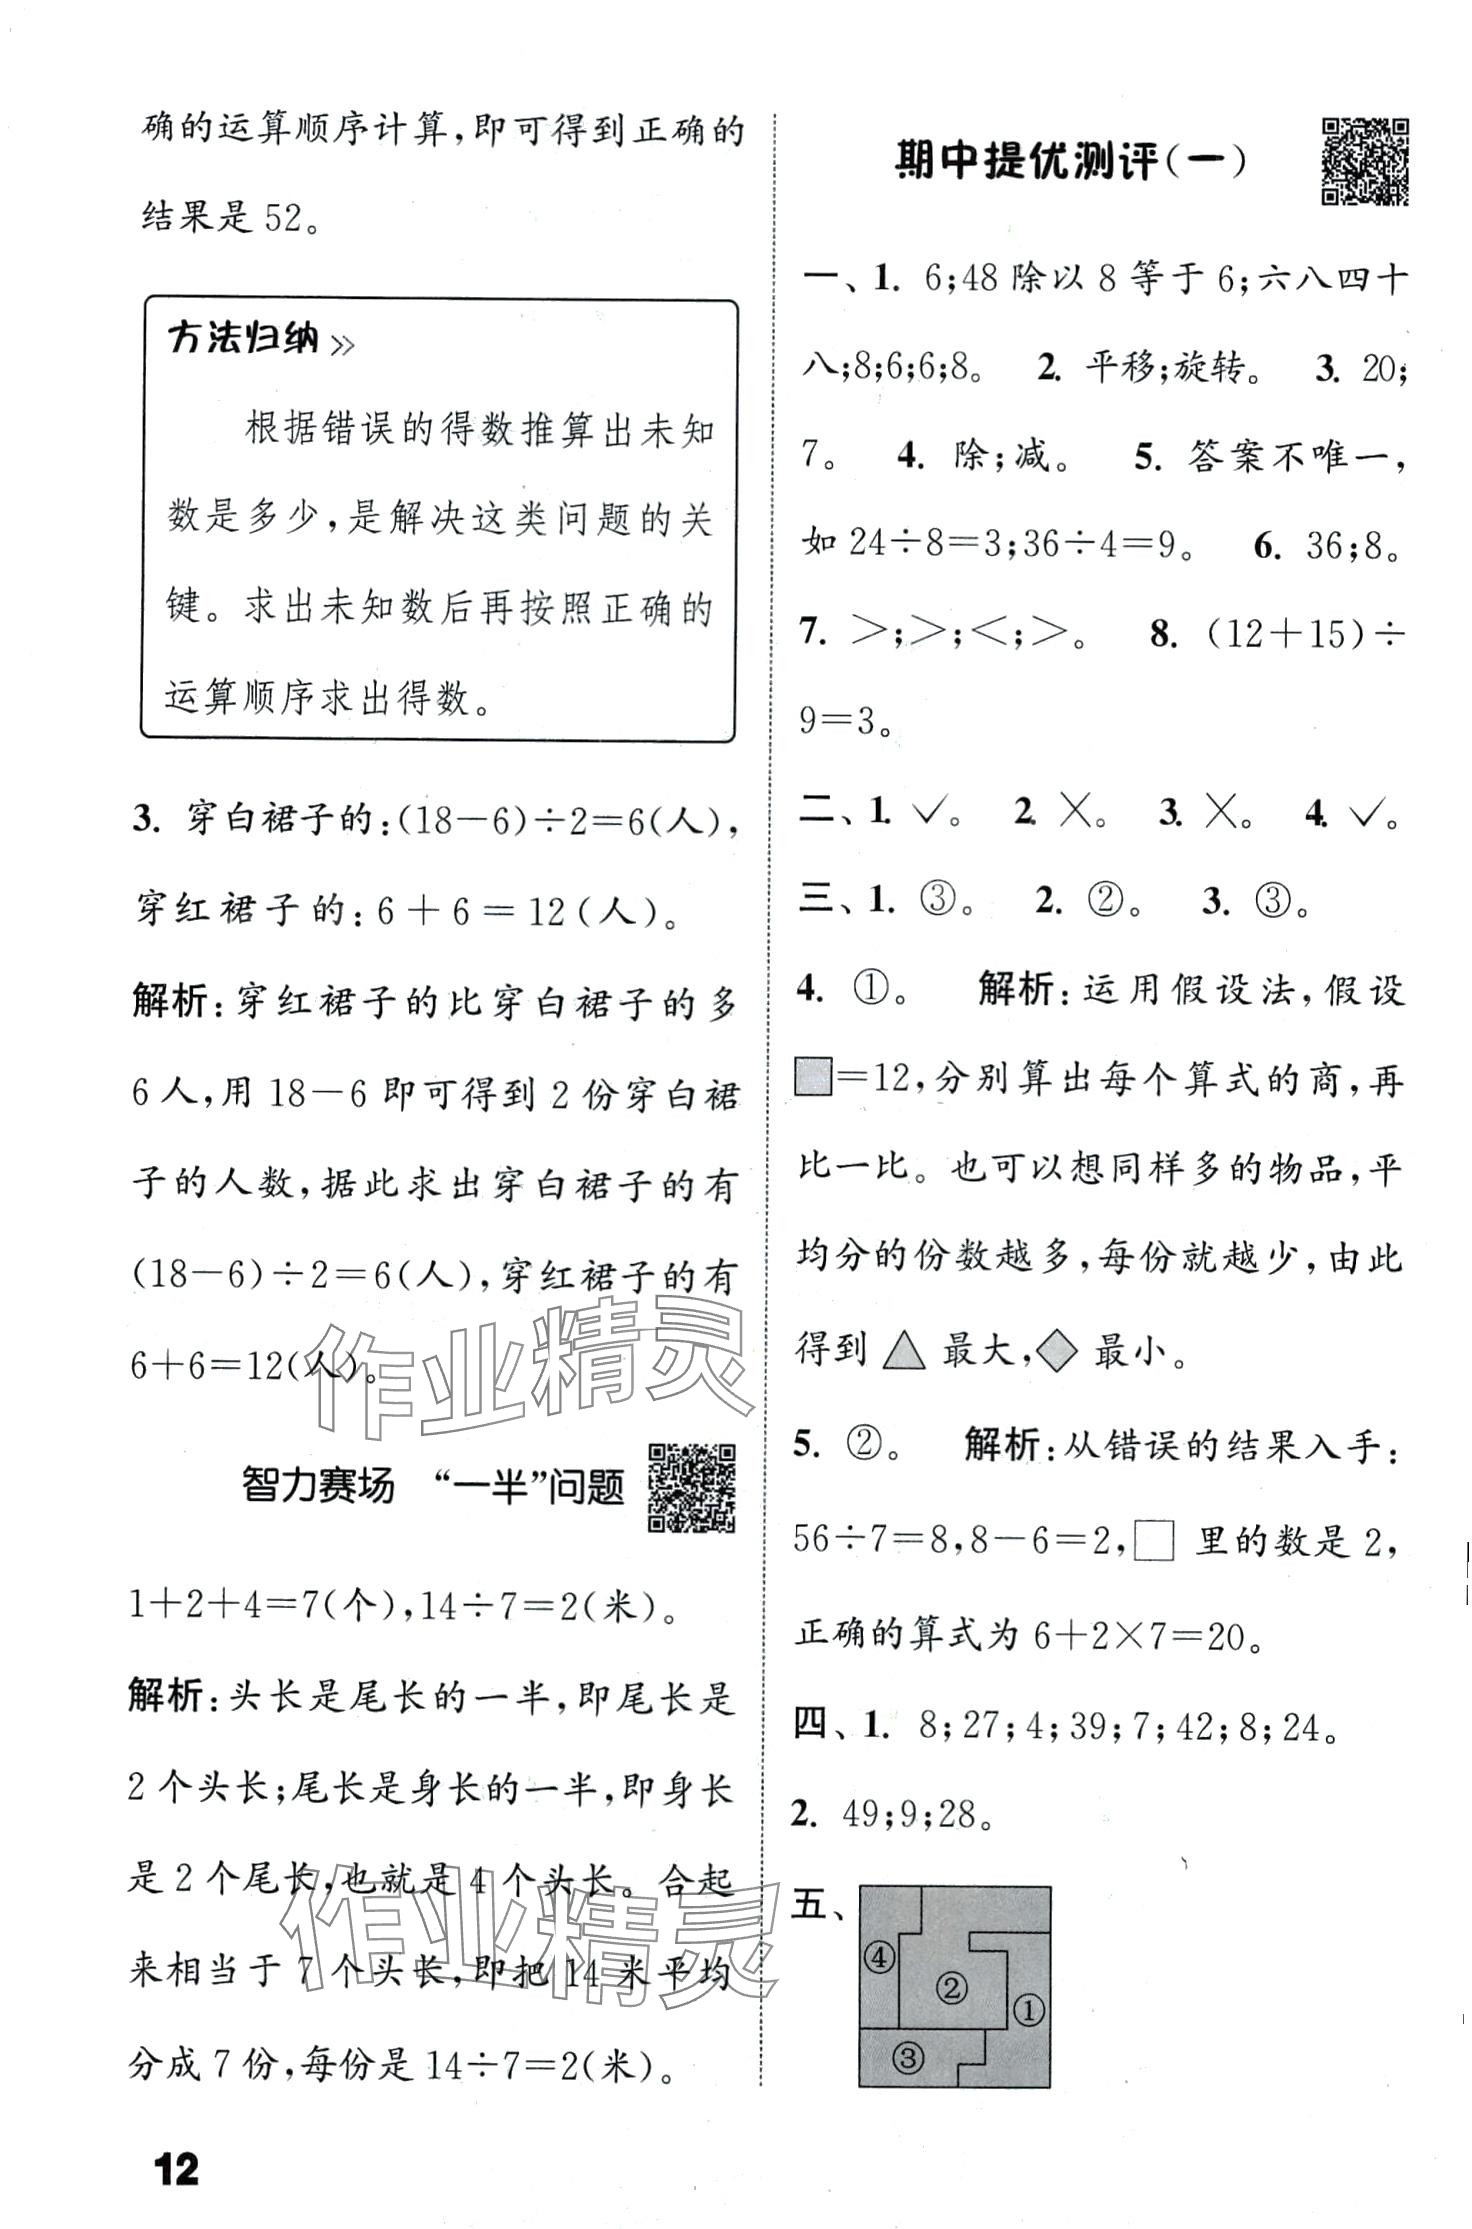 确的运算顺序计算，即可得到正确的
结果是 52。
方法归纳 >>
根据错误的得数推算出未知
数是多少，是解决这类问题的关
键。求出未知数后再按照正确的
运算顺序求出得数。
3. 穿白裙子的：(18－6)÷2＝6(人)，
穿红裙子的：6＋6＝12(人)。
解析：穿红裙子的比穿白裙子的多
6 人，用 18－6 即可得到 2 份穿白裙
子的人数，据此求出穿白裙子的有
(18－6)÷2＝6(人)，穿红裙子的有
6＋6＝12(人)。
作业精灵
智力赛场 “一半”问题
1＋2＋4＝7(个)，14÷7＝2(米)。
解析：头长是尾长的一半，即尾长是
2 个头长；尾长是身长的一半，即身长
是 2 个尾长，也就是 4 个头长。合起
来相当于 7 个头长，即把 14 米平均
分成 7 份，每份是 14÷7＝2(米)。
作业精灵
12
期中提优测评(一)
一、1. 6；48 除以 8 等于 6；六八四十
八；8；6；6；8。 2. 平移；旋转。 3. 20；
7。 4. 除；减。 5. 答案不唯一，
如 24÷8＝3；36÷4＝9。 6. 36；8。
7. ＞；＞；＜；＞。 8. (12＋15)÷
9＝3。
二、1. ✓。 2. ×。 3. ×。 4. ✓。
三、1. ③。 2. ②。 3. ③。
4. ①。 解析：运用假设法，假设
■＝12，分别算出每个算式的商，再
比一比。也可以想同样多的物品，平
均分的份数越多，每份就越少，由此
得到 ▲ 最大，◆ 最小。
5. ②。 解析：从错误的结果入手：
56÷7＝8，8－6＝2，□ 里的数是 2，
正确的算式为 6＋2×7＝20。
四、1. 8；27；4；39；7；42；8；24。
2. 49；9；28。
五、
④
②
①
③